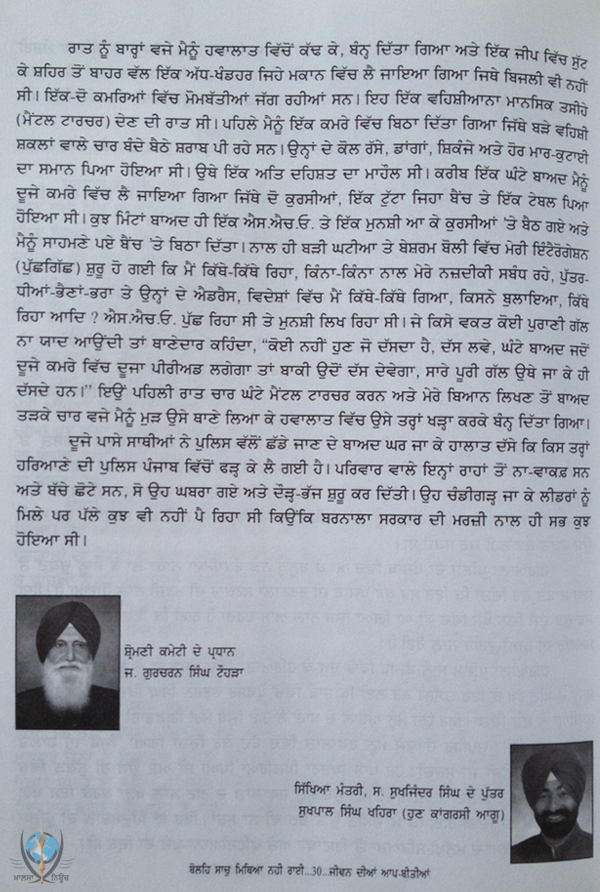 ਰਾਤ ਨੂੰ ਬਾਰ੍ਹਾਂ ਵਜੇ ਮੈਨੂੰ ਹਵਾਲਾਤ ਵਿੱਚੋਂ ਕੱਢ ਕੇ, ਬੰਨ੍ਹ ਦਿੱਤਾ ਗਿਆ ਅਤੇ ਇੱਕ ਜੀਪ ਵਿੱਚ ਸੁੱਟ
ਕੇ ਸ਼ਹਿਰ ਤੋਂ ਬਾਹਰ ਵੱਲ ਇੱਕ ਅੱਧ-ਖੰਡਹਰ ਜਿਹੇ ਮਕਾਨ ਵਿੱਚ ਲੈ ਜਾਇਆ ਗਿਆ ਜਿਥੇ ਬਿਜਲੀ ਵੀ ਨਹੀਂ
ਸੀ। ਇੱਕ-ਦੋ ਕਮਰਿਆਂ ਵਿੱਚ ਮੋਮਬੱਤੀਆਂ ਜੱਗ ਰਹੀਆਂ ਸਨ। ਇਹ ਇੱਕ ਵਹਿਸ਼ੀਆਨਾ ਮਾਨਸਿਕ ਤਸੀਹੇ
(ਮੈਂਟਲ ਟਾਰਚਰ) ਦੇਣ ਦੀ ਰਾਤ ਸੀ। ਪਹਿਲੇ ਮੈਨੂੰ ਇੱਕ ਕਮਰੇ ਵਿੱਚ ਬਿਠਾ ਦਿੱਤਾ ਗਿਆ ਜਿੱਥੇ ਬੜੇ ਵਹਿਸ਼ੀ
ਸ਼ਕਲਾਂ ਵਾਲੇ ਚਾਰ ਬੰਦੇ ਬੈਠੇ ਸ਼ਰਾਬ ਪੀ ਰਹੇ ਸਨ। ਉਨ੍ਹਾਂ ਦੇ ਕੋਲ ਰੱਸੇ, ਡਾਂਗਾਂ, ਸ਼ਿਕੰਜੇ ਅਤੇ ਹੋਰ ਮਾਰ-ਕੁਟਾਈ
ਦਾ ਸਮਾਨ ਪਿਆ ਹੋਇਆ ਸੀ। ਉਥੇ ਇੱਕ ਅਤਿ ਦਹਿਸ਼ਤ ਦਾ ਮਾਹੌਲ ਸੀ। ਕਰੀਬ ਇੱਕ ਘੰਟੇ ਬਾਅਦ ਮੈਨੂੰ
ਦੂਜੇ ਕਮਰੇ ਵਿੱਚ ਲੈ ਜਾਇਆ ਗਿਆ ਜਿੱਥੇ ਦੋ ਕੁਰਸੀਆਂ, ਇੱਕ ਟੁੱਟਾ ਜਿਹਾ ਬੈਂਚ ਤੇ ਇੱਕ ਟੇਬਲ ਪਿਆ
ਹੋਇਆ ਸੀ। ਕੁਝ ਮਿੰਟਾਂ ਬਾਅਦ ਹੀ ਇੱਕ ਐਸ.ਐਚ.ਓ. ਤੇ ਇੱਕ ਮੁਨਸ਼ੀ ਆ ਕੇ ਕੁਰਸੀਆਂ 'ਤੇ ਬੈਠ ਗਏ ਅਤੇ
ਮੈਨੂੰ ਸਾਹਮਣੇ ਪਏ ਬੈਂਚ 'ਤੇ ਬਿਠਾ ਦਿੱਤਾ। ਨਾਲ ਹੀ ਬੜੀ ਘਟੀਆ ਤੇ ਬੇਸ਼ਰਮ ਬੋਲੀ ਵਿੱਚ ਮੇਰੀ ਇੰਟੈਰੋਗੇਸ਼ਨ
(ਪੁੱਛਗਿੱਛ) ਸ਼ੁਰੂ ਹੋ ਗਈ ਕਿ ਮੈਂ ਕਿੱਥੇ-ਕਿੱਥੇ ਰਿਹਾ, ਕਿੰਨਾ-ਕਿੰਨਾ ਨਾਲ ਮੇਰੇ ਨਜ਼ਦੀਕੀ ਸਬੰਧ ਰਹੇ, ਪੁੱਤਰ-
ਧੀਆਂ-ਭੈਣਾਂ-ਭਰਾ ਤੇ ਉਨ੍ਹਾਂ ਦੇ ਐਡਰੈਸ, ਵਿਦੇਸ਼ਾਂ ਵਿੱਚ ਮੈਂ ਕਿੱਥੇ-ਕਿੱਥੇ ਗਿਆ, ਕਿਸਨੇ ਬੁਲਾਇਆ, ਕਿੱਥੇ
ਰਿਹਾ ਆਦਿ ? ਐਸ.ਐਚ.ਓ. ਪੁੱਛ ਰਿਹਾ ਸੀ ਤੇ ਮੁਨਸ਼ੀ ਲਿਖ ਰਿਹਾ ਸੀ। ਜੇ ਕਿਸੇ ਵਕਤ ਕੋਈ ਪੁਰਾਣੀ ਗੱਲ
ਨਾ ਯਾਦ ਆਉਂਦੀ ਤਾਂ ਥਾਣੇਦਾਰ ਕਹਿੰਦਾ, "ਕੋਈ ਨਹੀਂ ਹੁਣ ਜੋ ਦੱਸਦਾ ਹੈ, ਦੱਸ ਲਵੇ, ਘੰਟੇ ਬਾਅਦ ਜਦੋਂ
ਦੂਜੇ ਕਮਰੇ ਵਿੱਚ ਦੂਜਾ ਪੀਰੀਅਡ ਲਗੇਗਾ ਤਾਂ ਬਾਕੀ ਉਦੋਂ ਦੱਸ ਦੇਵੇਗਾ, ਸਾਰੇ ਪੂਰੀ ਗੱਲ ਉਥੇ ਜਾ ਕੇ ਹੀ
ਦੱਸਦੇ ਹਨ।" ਇਉਂ ਪਹਿਲੀ ਰਾਤ ਚਾਰ ਘੰਟੇ ਮੈਂਟਲ ਟਾਰਚਰ ਕਰਨ ਅਤੇ ਮੇਰੇ ਬਿਆਨ ਲਿਖਣ ਤੋਂ ਬਾਅਦ
ਤੜਕੇ ਚਾਰ ਵਜੇ ਮੈਨੂੰ ਮੁੜ ਉਸੇ ਥਾਣੇ ਲਿਆ ਕੇ ਹਵਾਲਾਤ ਵਿੱਚ ਉਸੇ ਤਰ੍ਹਾਂ ਖੜ੍ਹਾ ਕਰਕੇ ਬੰਨ੍ਹ ਦਿੱਤਾ ਗਿਆ।
ਦੂਜੇ ਪਾਸੇ ਸਾਥੀਆਂ ਨੇ ਪੁਲਿਸ ਵੱਲੋਂ ਛੱਡੇ ਜਾਣ ਦੇ ਬਾਅਦ ਘਰ ਜਾ ਕੇ ਹਾਲਾਤ ਦੱਸੇ ਕਿ ਕਿਸ ਤਰ੍ਹਾਂ
ਹਰਿਆਣੇ ਦੀ ਪੁਲਿਸ ਪੰਜਾਬ ਵਿੱਚੋਂ ਫੜ੍ਹ ਕੇ ਲੈ ਗਈ ਹੈ। ਪਰਿਵਾਰ ਵਾਲੇ ਇਨ੍ਹਾਂ ਰਾਹਾਂ ਤੋਂ ਨਾ-ਵਾਕਫ਼ ਸਨ
ਅਤੇ ਬੱਚੇ ਛੋਟੇ ਸਨ, ਸੋ ਉਹ ਘਬਰਾ ਗਏ ਅਤੇ ਦੌੜ੍ਹ-ਭੱਜ ਸ਼ੁਰੂ ਕਰ ਦਿੱਤੀ। ਉਹ ਚੰਡੀਗੜ੍ਹ ਜਾ ਕੇ ਲੀਡਰਾਂ ਨੂੰ
ਮਿਲੇ ਪਰ ਪੱਲੇ ਕੁਝ ਵੀ ਨਹੀਂ ਪੈ ਰਿਹਾ ਸੀ ਕਿਉਂਕਿ ਬਰਨਾਲਾ ਸਰਕਾਰ ਦੀ ਮਰਜ਼ੀ ਨਾਲ ਹੀ ਸਭ ਕੁਝ
ਹੋਇਆ ਸੀ।
ਸ਼੍ਰੋਮਣੀ ਕਮੇਟੀ ਦੇ ਪ੍ਰਧਾਨ
ਜ. ਗੁਰਚਰਨ ਸਿੰਘ ਟੌਹੜਾ
ਸਿੱਖਿਆ ਮੰਤਰੀ, ਸ. ਸੁਖਜਿੰਦਰ ਸਿੰਘ ਦੇ ਪੁੱਤਰ
ਸੁਖਪਾਲ ਸਿੰਘ ਖਹਿਰਾ (ਹੁਣ ਕਾਂਗਰਸੀ ਆਗੂ)
ਖਾਲਸਾ ਨਿਊਜ਼
ਬੋਲਹਿ ਸਾਚੁ ਮਿਥਿਆ ਨਹੀ ਰਾਈ...30...ਜੀਵਨ ਦੀਆਂ ਆਪ-ਬੀਤੀਆਂ